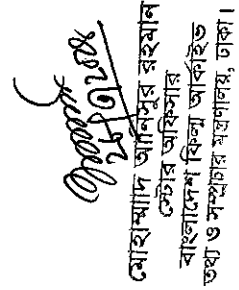 মোহাম্মাদ আনিসুর রহমান
স্টোর অফিসার
বাংলাদেশ ফিল্ম আর্কাইভ
তথ্য ও সম্প্রচার মন্ত্রণালয়, ঢাকা।